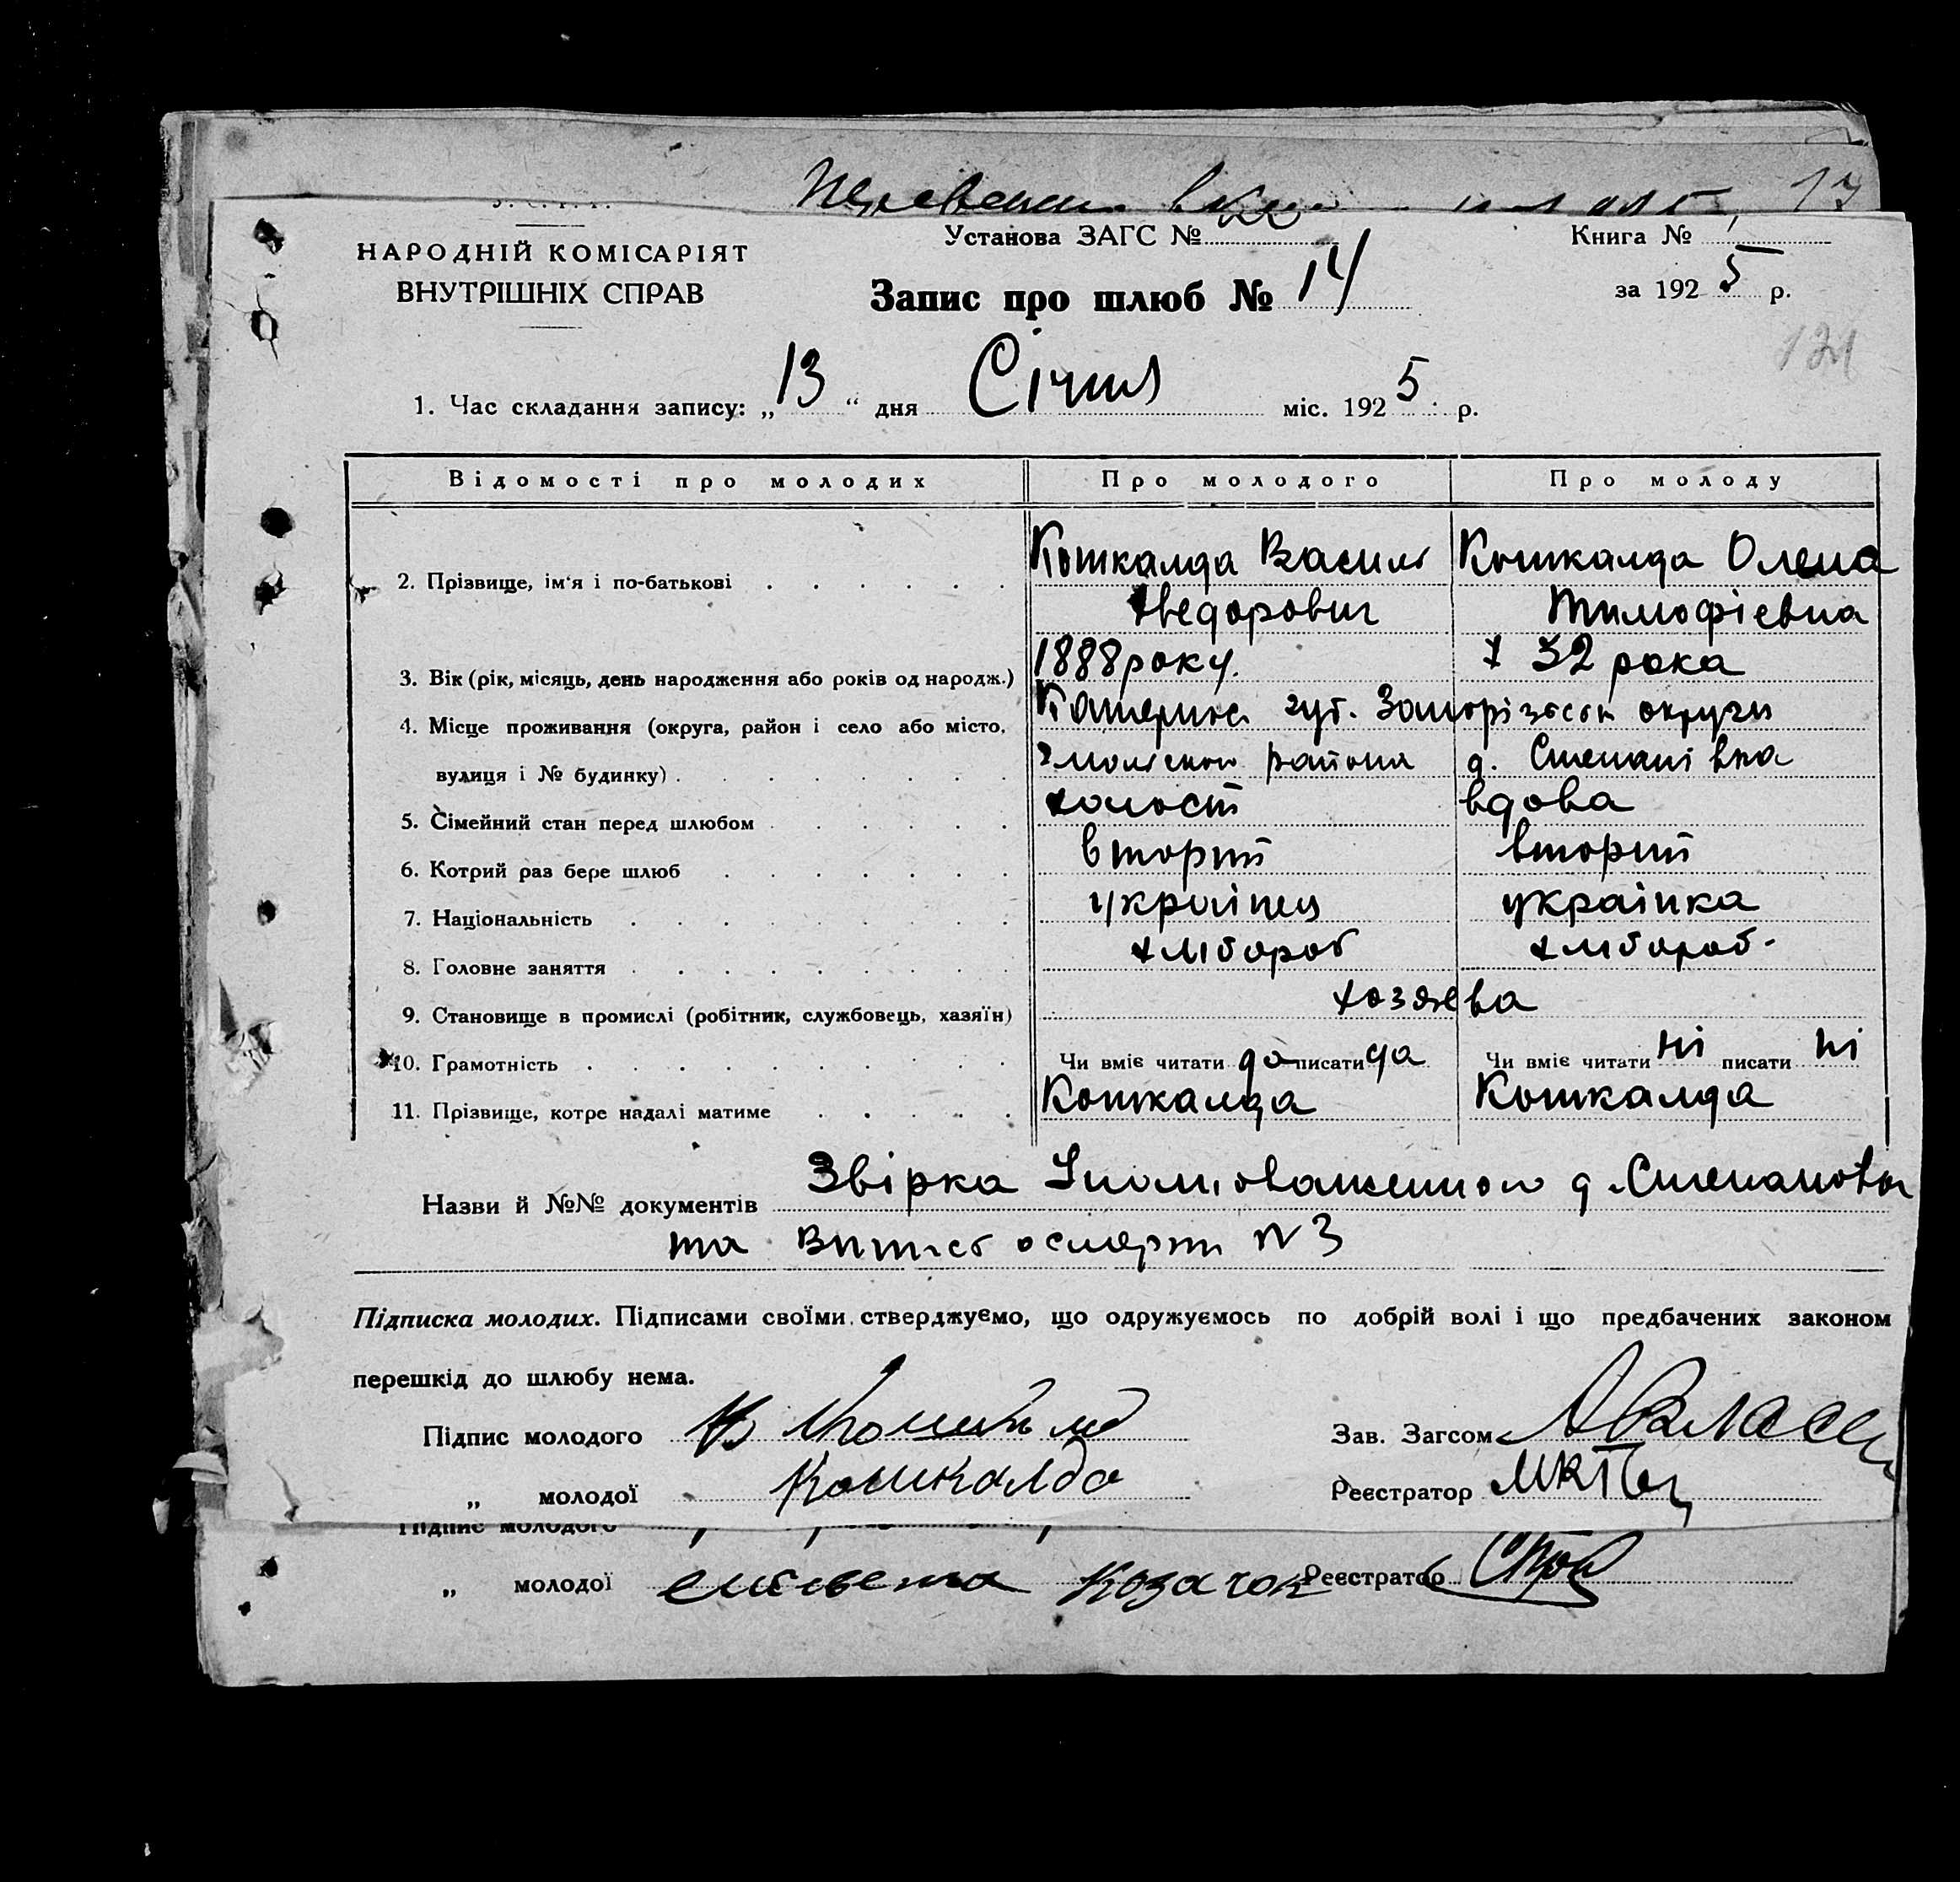 17
Установа ЗАГС №
Книга №
НАРОДНІЙ КОМІСАРІЯТ
ВНУТРІШНІХ СПРАВ
Запис про шлюб № 14
за 1925 р.
121
1. Час складання запису: „13“ дня Січня міс. 1925 р.
Відомості про молодих Про молодого Про молоду
Кошкалда Василь Кошкалда Олена
2. Прізвище, ім'я і по-батькові
Хведорович Тимофіевна
3. Вік (рік, місяць, день народження або років од народж.) 1888 року. 32 рока
4. Місце проживання (округа, район і село або місто, Катеринос. губ. Запорізськ округи
вулиця і № будинку) района д. Степанівка
5. Сімейний стан перед шлюбом холост вдова
6. Котрий раз бере шлюб вторий вторий
7. Національність украінец украінка
8. Головне заняття хлібороб хлібороб.
9. Становище в промислі (робітник, службовець, хазяїн) хозяева
10. Грамотність Чи вміє читати да писати да Чи вміє читати ні писати ні
11. Прізвище, котре надалі матиме Кошкалда Кошкалда
Назви й №№ документів Звірка д. Степановки
та Випись о смерти №3
Підписка молодих. Підписами своїми стверджуємо, що одружуємось по добрій волі і що предбачених законом
перешкід до шлюбу нема.
Підпис молодого Зав. Загсом
„ молодої Кошкалда Реєстратор
Підпис молодого
„ молодої Козачок Реєстратор